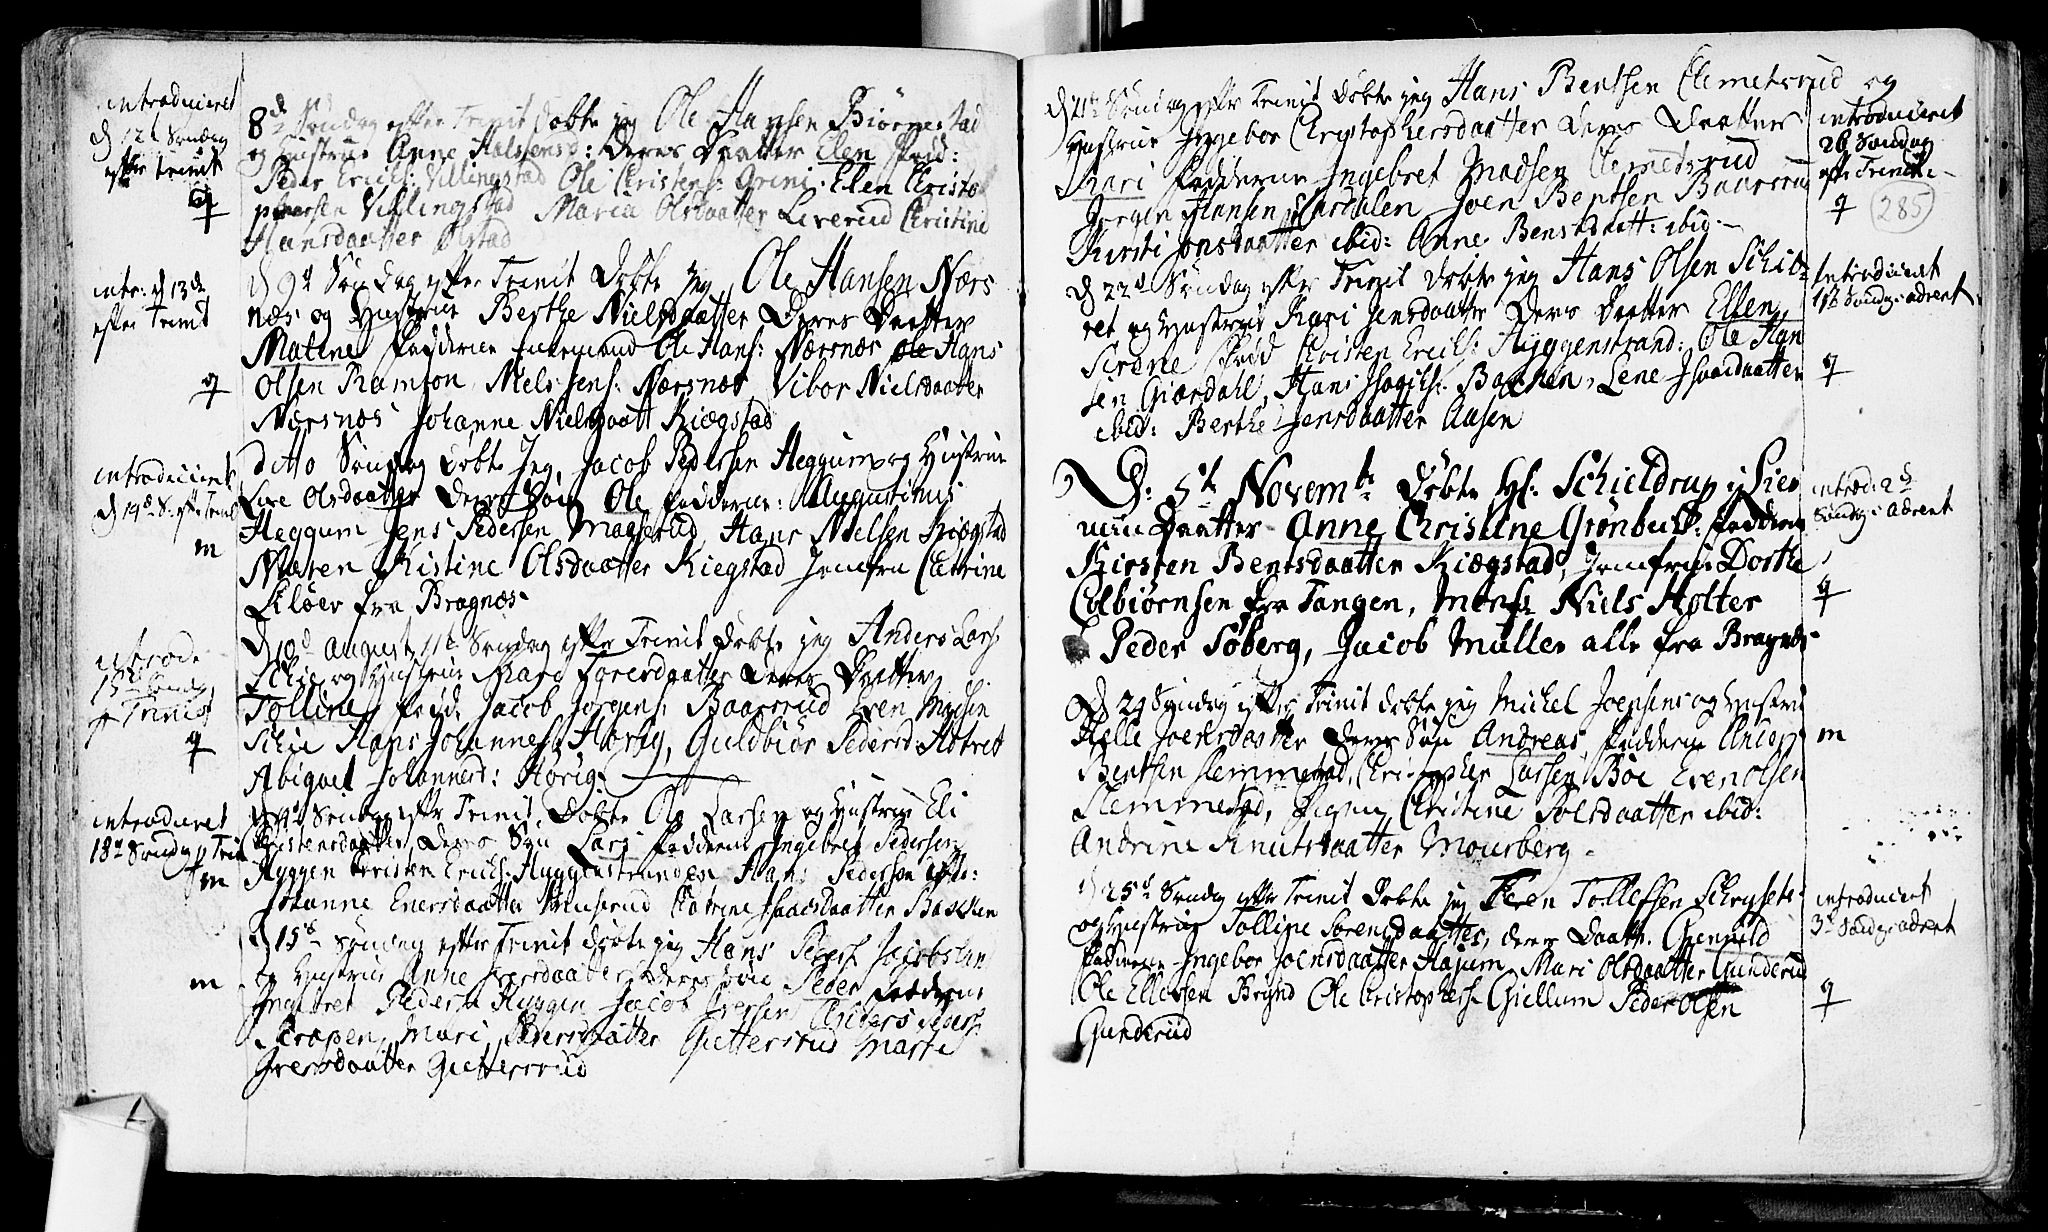 introduceret
d 12te Søndag
efter trinit
8de Søndag efter Trinit Døbte jeg Ole Hansen Biørnestad
og Hustrue Anne Halfsensd: Deres Daatter Elen Fad:
Peder Erichs: Villingstad Ole Christens: Grini. Elen Christo
phersen Villingstad Maria Olsdaatter Liverud Christine
Hansdaatter Ølstad
intr: d 13de
efter Trinit
d 9de Søndag efter Trinit Døbte jeg Ole Hansen Nærs
næs og Hustrue Berthe Nielsdaatter Deres Daatter
Matine Fadderne Ole Hans: Nærsnæs Hans
Olsen Ramton Niels Jens: Nærsnæs Vibor Nielsdaatter
Nærsnæs Johanne Nielsdaatt Kiægstad
introduceret
d 14de S: efter Trinit
m
ditto Søndag Døbte Jeg Jacob Pedersen Heggum og Hustrue
Live Olsdaatter Deres Søn Ole Fadderne: Augustinus
Heggum Jens Pedersen Hans Nielsen Kiægstad
Maren Kistine Olsdaatter Kiegstad Jomfru Catrine
Kløev fra Bragnæs
introd:
15de Søndag
p Trinit
d 10de August 11te Søndag efter Trinit Døbte jeg Anders Lars:
og Hustrue Mari Toresdaatter Deres Daatter
Tolline Fadd. Jacob Jørgens: Baarsrud Even Madsen
Hans Johannes: Hørig, Guldbiør Pedersd:
Abiguel Johannesd: Hørig
introduceret
18de Søndag p Trin
m
Søndag efter Trinit. Døbte Ole Larsen og Hustrue Eli
Christensdaatter Deres Søn Lars Fadderne Ingebret Pedersen
Hyggen Christen Erichs: Hyggenstranden Hans Pedersen ibid:
Johanne Enersdaatter Catrine Isaacsdaatter Bakken
m
d 15de Søndag efter Trinit døbte jeg Hans Peders: Jacobslun
og Hustrue Anne Iversdaatter Deres Søn Peder Fadderne
Ingebret Peders: Hyggen Jacob Iversen Anders Peders:
Mari Pedersdaatter Guttersrud Marte
Iversdaatter Guttersrud
d 21de Søndag efter Trinit Døbte jeg Hans Bentsen Clemetsrud og
Hustrue Ingebor Christophersdaatter Deres Daatter
Kari Fadderne Ingebret Madsen Clemetsrud
Jørgen Hansen Joen Bentsen Baarsrud
Kirsti Jonsdaatter ibid: Anne Bensdaatt: ibid
introduceret
26 Søndag
efter Trinit:
285
d 22de Søndag efter Trinit Døbte jeg Hans Olsen Schit
ret og Hustrue Kari Jensdaatter Deres Daatter Ellen
Sirene Fad Christen Erichs: Hyggenstrand: Ole Han
sen Giærdahl, Hans Isachs: Bakken, Lene Isaacdaatter
ibid: Berthe Jensdaatter Aasen
Introduceret
1ste Søndag: advent
D: 5te Novembr Døbte Hr: Schieldrup i Lier
min Daatter Anne Christine Grønbech: Fadderne
Kirsten Bentsdaatter Kiægstad, Jomfrue Dorthe
Colbiørnsen fra Tangen, Monsr Niels Holter
Peder Søberg, Jacob Müller alle fra Bragnæs
introd: 2de
Søndag: advent
d 24 Søndag efter Trinit døbte jeg Michel Joensens og Hustrue
Helle Joensdaatter Deres Søn Andreas, Fadderne
Bentsen Slemmestad, Christopher Larsen Bøe Even Olsen
Slemmestad, Pigen Christine Polsdaatter ibid:
Andrine Knutsdaatter Mourberg
m
d 25de Søndag efter Trinit Døbte jeg Søren Tollefsen
og Hustrue Tolline Sørensdaatter, deres Daatt: Gunild
Fadderne Ingebor Joensdaatter Hajum Mari Olsdaatter Gunderud
Ole Ellefsen Ole Christophers: Giellum Peder Olsen
Gunderud
introduceret
3de Søndag: advent